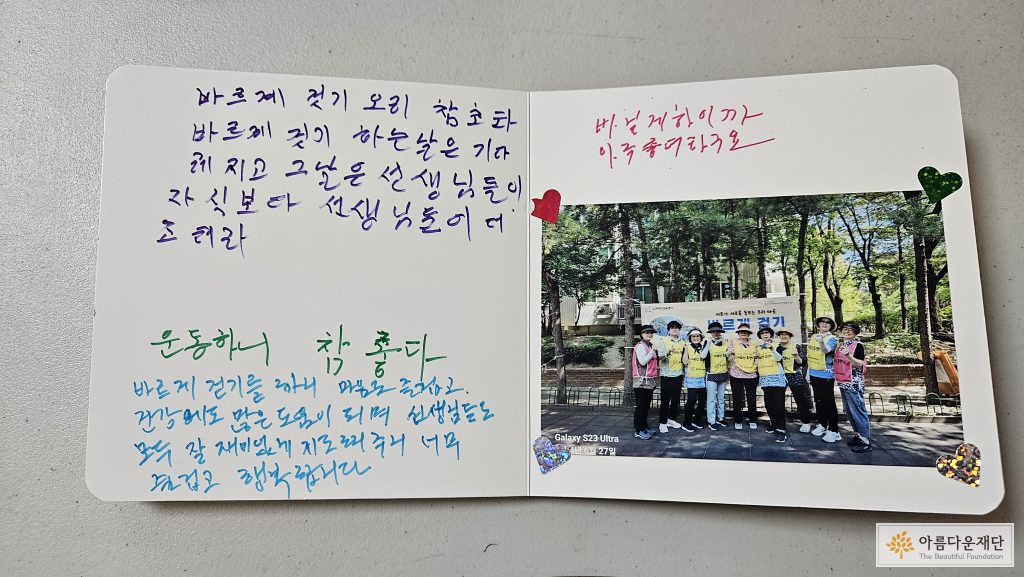 바르게 젓기 오리 참 초타
바르게 긋기 하는날은 기다
레 지고 그날은 선생님들이
자식보다 선생님들이 더
조터라
운동하니 참 좋다
바르게 걷기를 하니 마음도 즐겁고.
건강에도 많은 도움이 되며 선생님들도
모두 잘 재미있게 지도해주셔 너무
즐겁고 행복합니다
아주 좋더라구요
바르게 걷기
Galaxy S23 Ultra
6월 27일
아름다운재단
The Beautiful Foundation